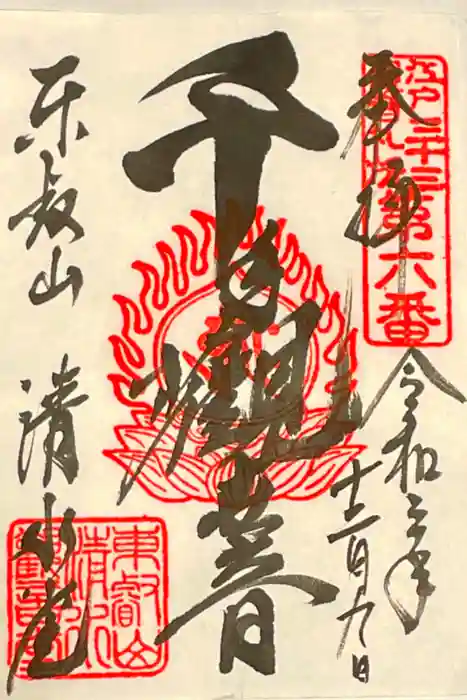 江戸三十三
観音札所第六番
奉拝
令和三年
十二月九日
千手観音
東叡山 清水堂
東叡山
清水
観音堂